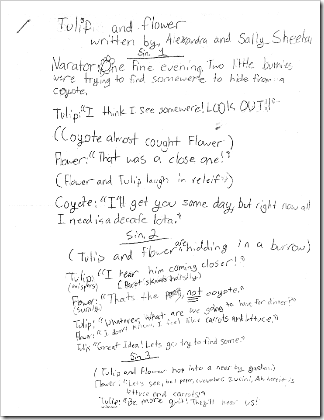 Tulip and flower
written by, Alexandra and Sally Sheeha
Sin. 1
Narator: One fine evening. Two little bunnies
were trying to find somewere to hide from a
coyote.
Tulip: "I think I see somewere! LOOK OUT!!"
(Coyote almost cought Flower)
Flower: "That was a close one!"
(Flower and Tulip laugh in releif)
Coyote: "I'll get you some day, but right now all
I need is a decafe lota."
Sin. 2
(Tulip and flower are hidding in a burrow)
Tulip: "I hear him coming closer!"
(wispers)
Flower: "Thats the not coyote."
Tulip: "Whatever, what are we going to have for dinner"
Flower: "I don't know, I feel like carrots and lettuce."
Tulip "Great Idea! Lets go try to find some."
Sin. 3
(Tulip and Flower hop into a near by garden)
Flower: "Lets see,
lettuce and carrots"
Tulip: "Be more quit! They'll hear us!